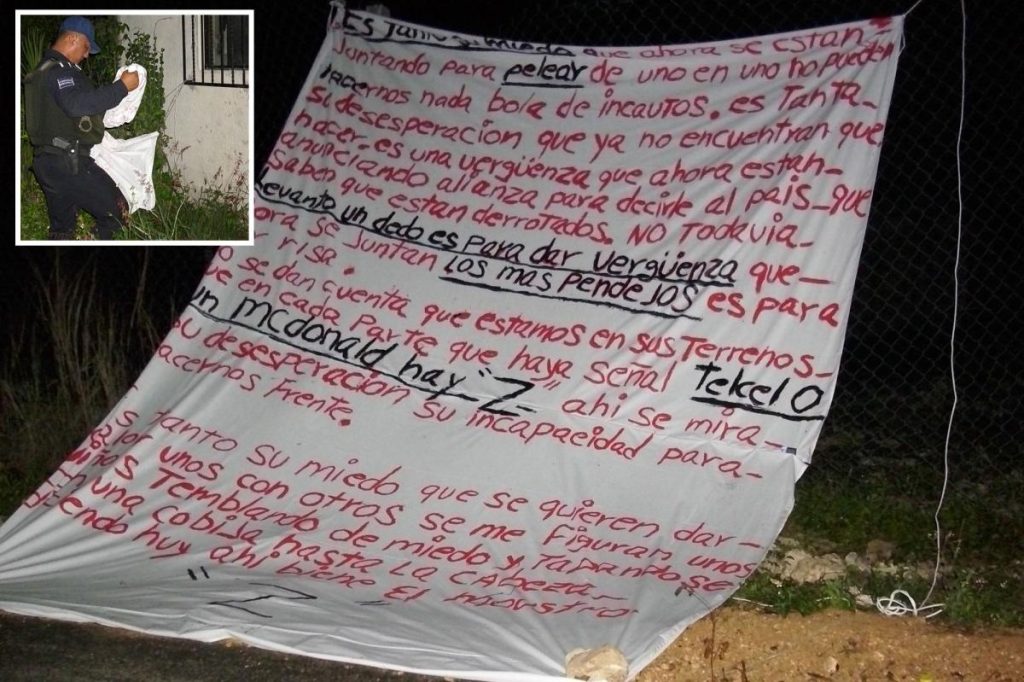 Es Tanto su miedo que ahora se estan-
Juntando para pelear de uno en uno no pueden
hacernos nada bola de incautos. es Tanta-
su desesperacion que ya no encuentran que
hacer. es una vergüenza que ahora estan-
anunciando alianza para decirle al pais-que
saben que estan derrotados. NO Todavia-
Levanto un dedo es para dar vergüenza que-
ora se juntan Los mas pendejos es para
risa.
se dan cuenta que estamos en sus Terrenos-
en cada parte que haya señal Tekel O
un mcdonald hay "Z" ahi se mira-
su desesperacion su incapacidad para-
acernos Frente.
Tanto su miedo que se quieren dar-
alor unos con otros se me Figuran unos
niños Temblando de miedo y Tapandose
En una cobija hasta La cabeza-
Diciendo huy ahi biene El mostro
"Z"